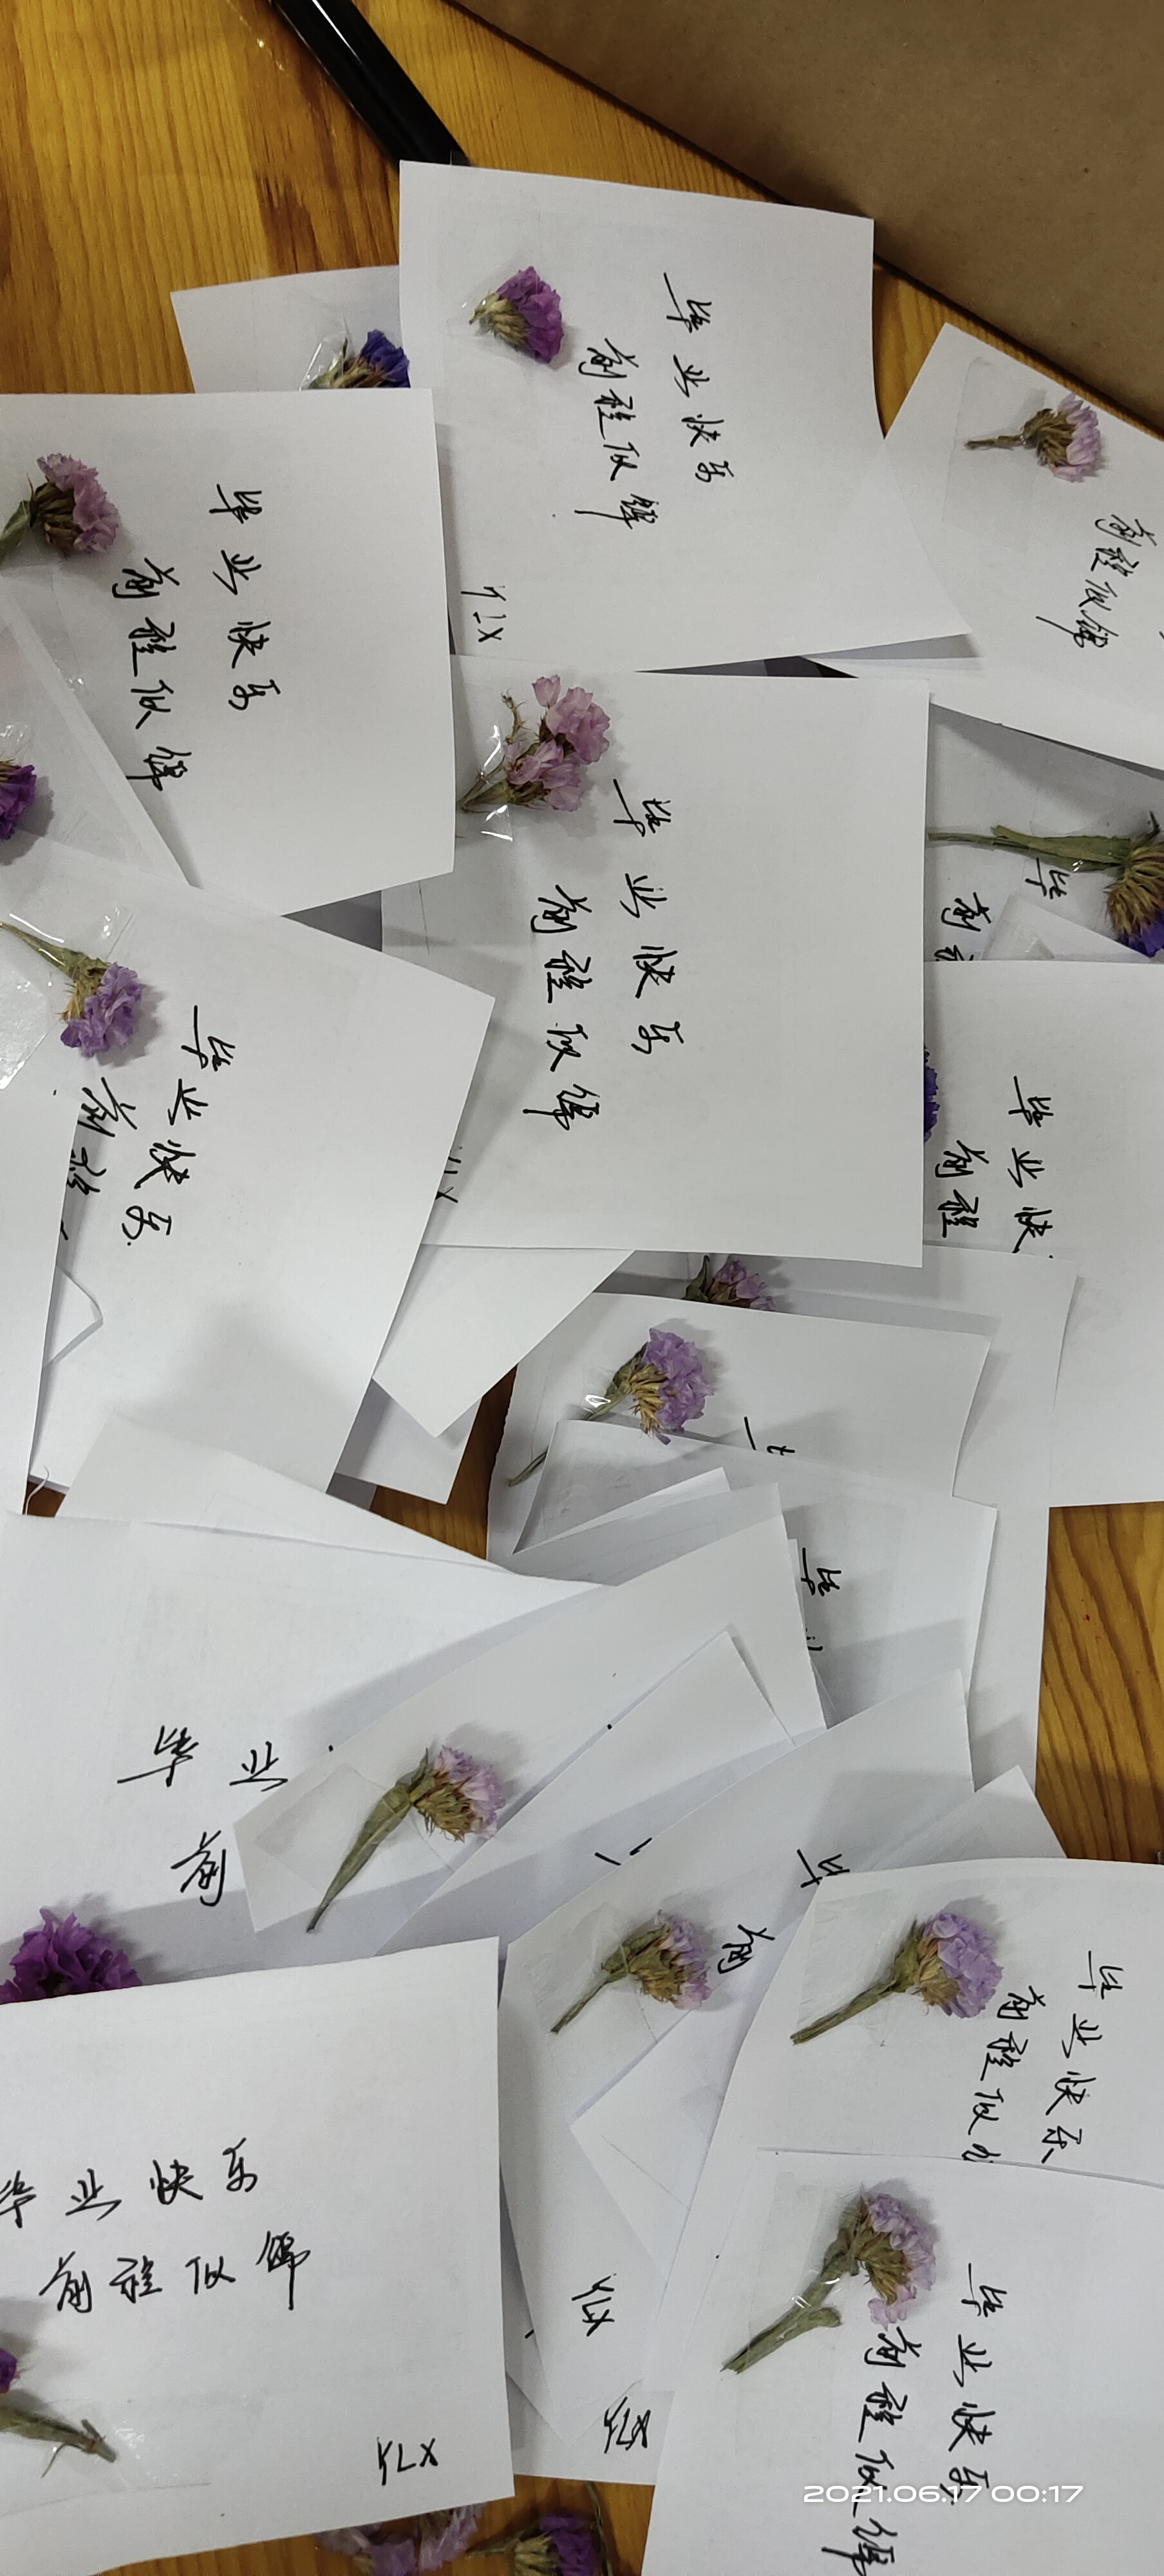 毕业快乐
前程似锦
YLX
前程似锦
毕业快乐
前程似锦
毕业快乐
前程似锦
YLX
毕
前程
毕业快乐
前程
毕业快
前程
毕
毕业
前
毕
前
毕业快乐
前程似
毕业快乐
前程似锦
YLX
YLX
YLX
毕业快乐
前程似锦
2021.06.17 00:17